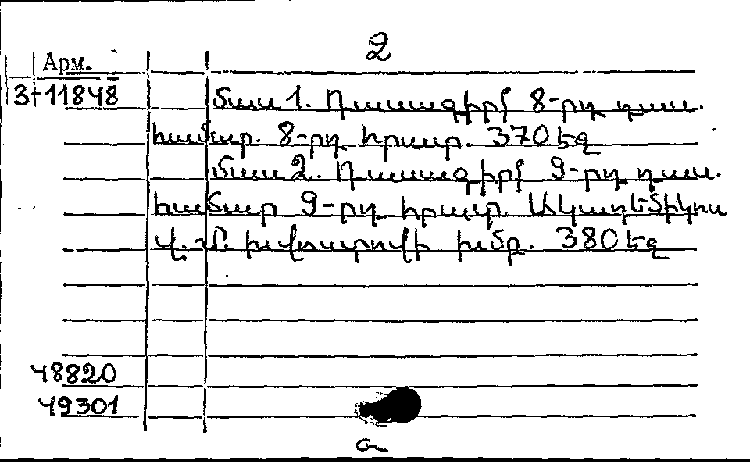 2
Арм.
3-11848
Մաս 1. Դասագիրք 8-րդ դաս.
համար. 8-րդ հրատ. 370 եզ
Մաս 2. Դասագիրք 9-րդ դաս.
համար 9-րդ հրատ. Ակադեմիկոս
Վ. Մ. խվոստովի խմբ. 380 եզ
48820
49301